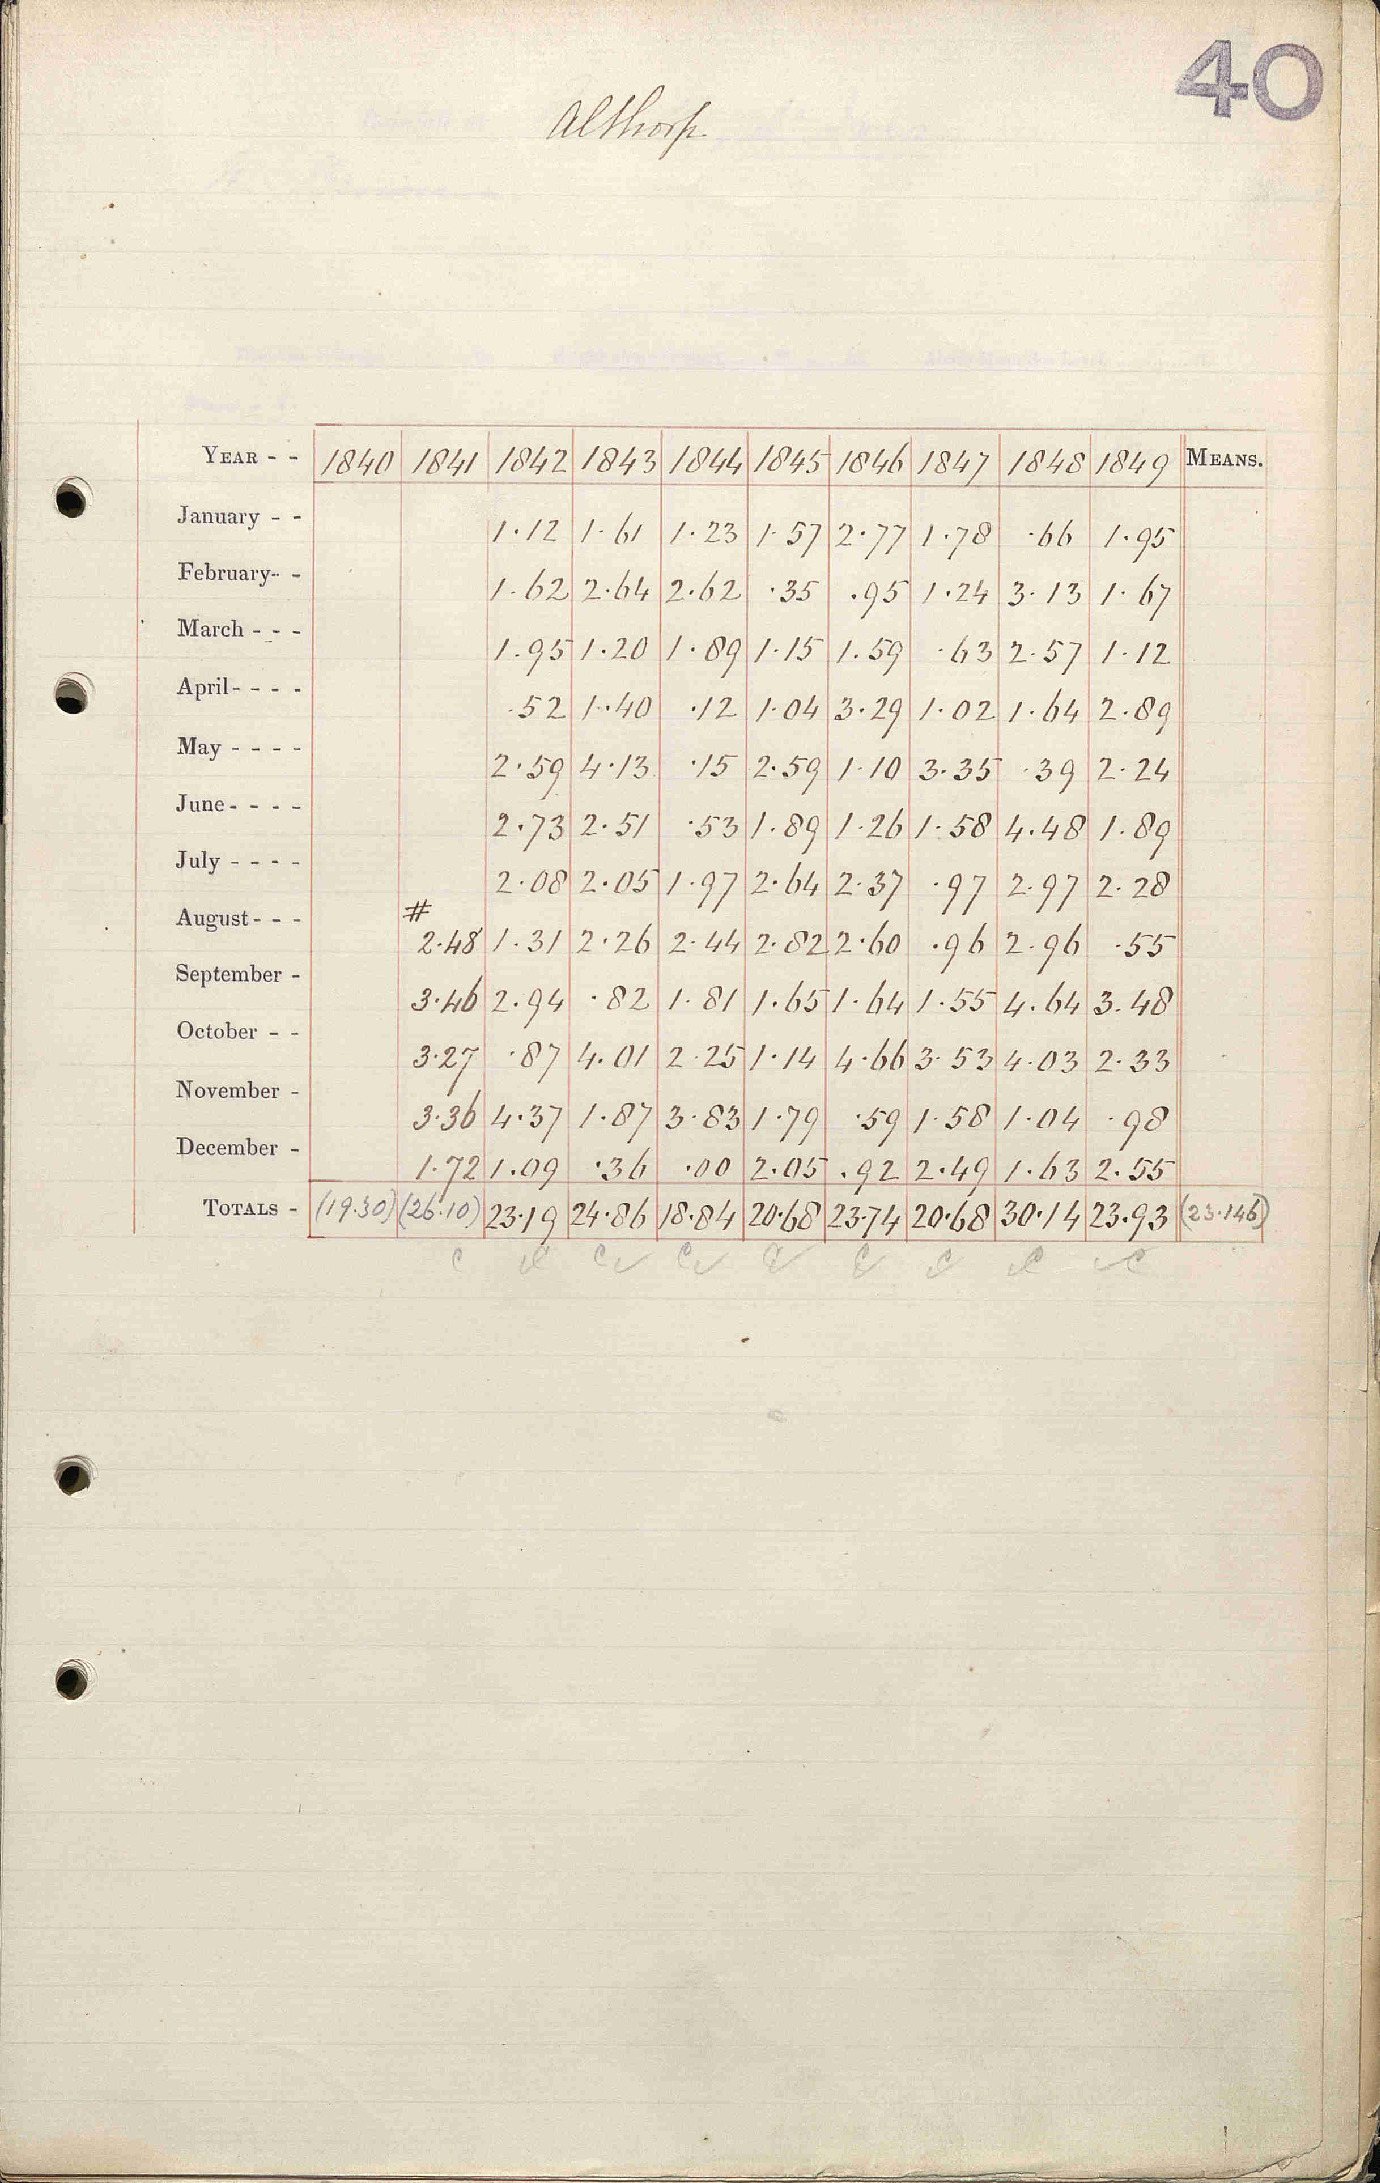 40
Althorp
YEAR - - 1840 1841 1842 1843 1844 1845 1846 1847 1848 1849 MEANS.
January - - 1.12 1.61 1.23 1.57 2.77 1.78 .66 1.95
February- - 1.62 2.64 2.62 .35 .95 1.24 3.13 1.67
March - - - 1.95 1.20 1.89 1.15 1.59 .63 2.57 1.12
April - - - - .52 1.40 .12 1.04 3.29 1.02 1.64 2.89
May - - - - 2.59 4.13 .15 2.59 1.10 3.35 .39 2.24
June - - - - 2.73 2.51 .53 1.89 1.26 1.58 4.48 1.89
July - - - - 2.08 2.05 1.97 2.64 2.37 .97 2.97 2.28
August - - - # 2.48 1.31 2.26 2.44 2.82 2.60 .96 2.96 .55
September - 3.46 2.94 .82 1.81 1.65 1.64 1.55 4.64 3.48
October - - 3.27 .87 4.01 2.25 1.14 4.66 3.53 4.03 2.33
November - 3.36 4.37 1.87 3.83 1.79 .59 1.58 1.04 .98
December - 1.72 1.09 .36 .00 2.05 .92 2.49 1.63 2.55
TOTALS - (19.30) (26.10) 23.19 24.86 18.84 20.68 23.74 20.68 30.14 23.93 (23.146)